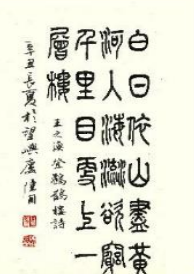 白日依山盡黃
河入海流欲窮
千里目更上一
層樓
王之渙登鸛鵲樓詩
辛丑長夏於望廬